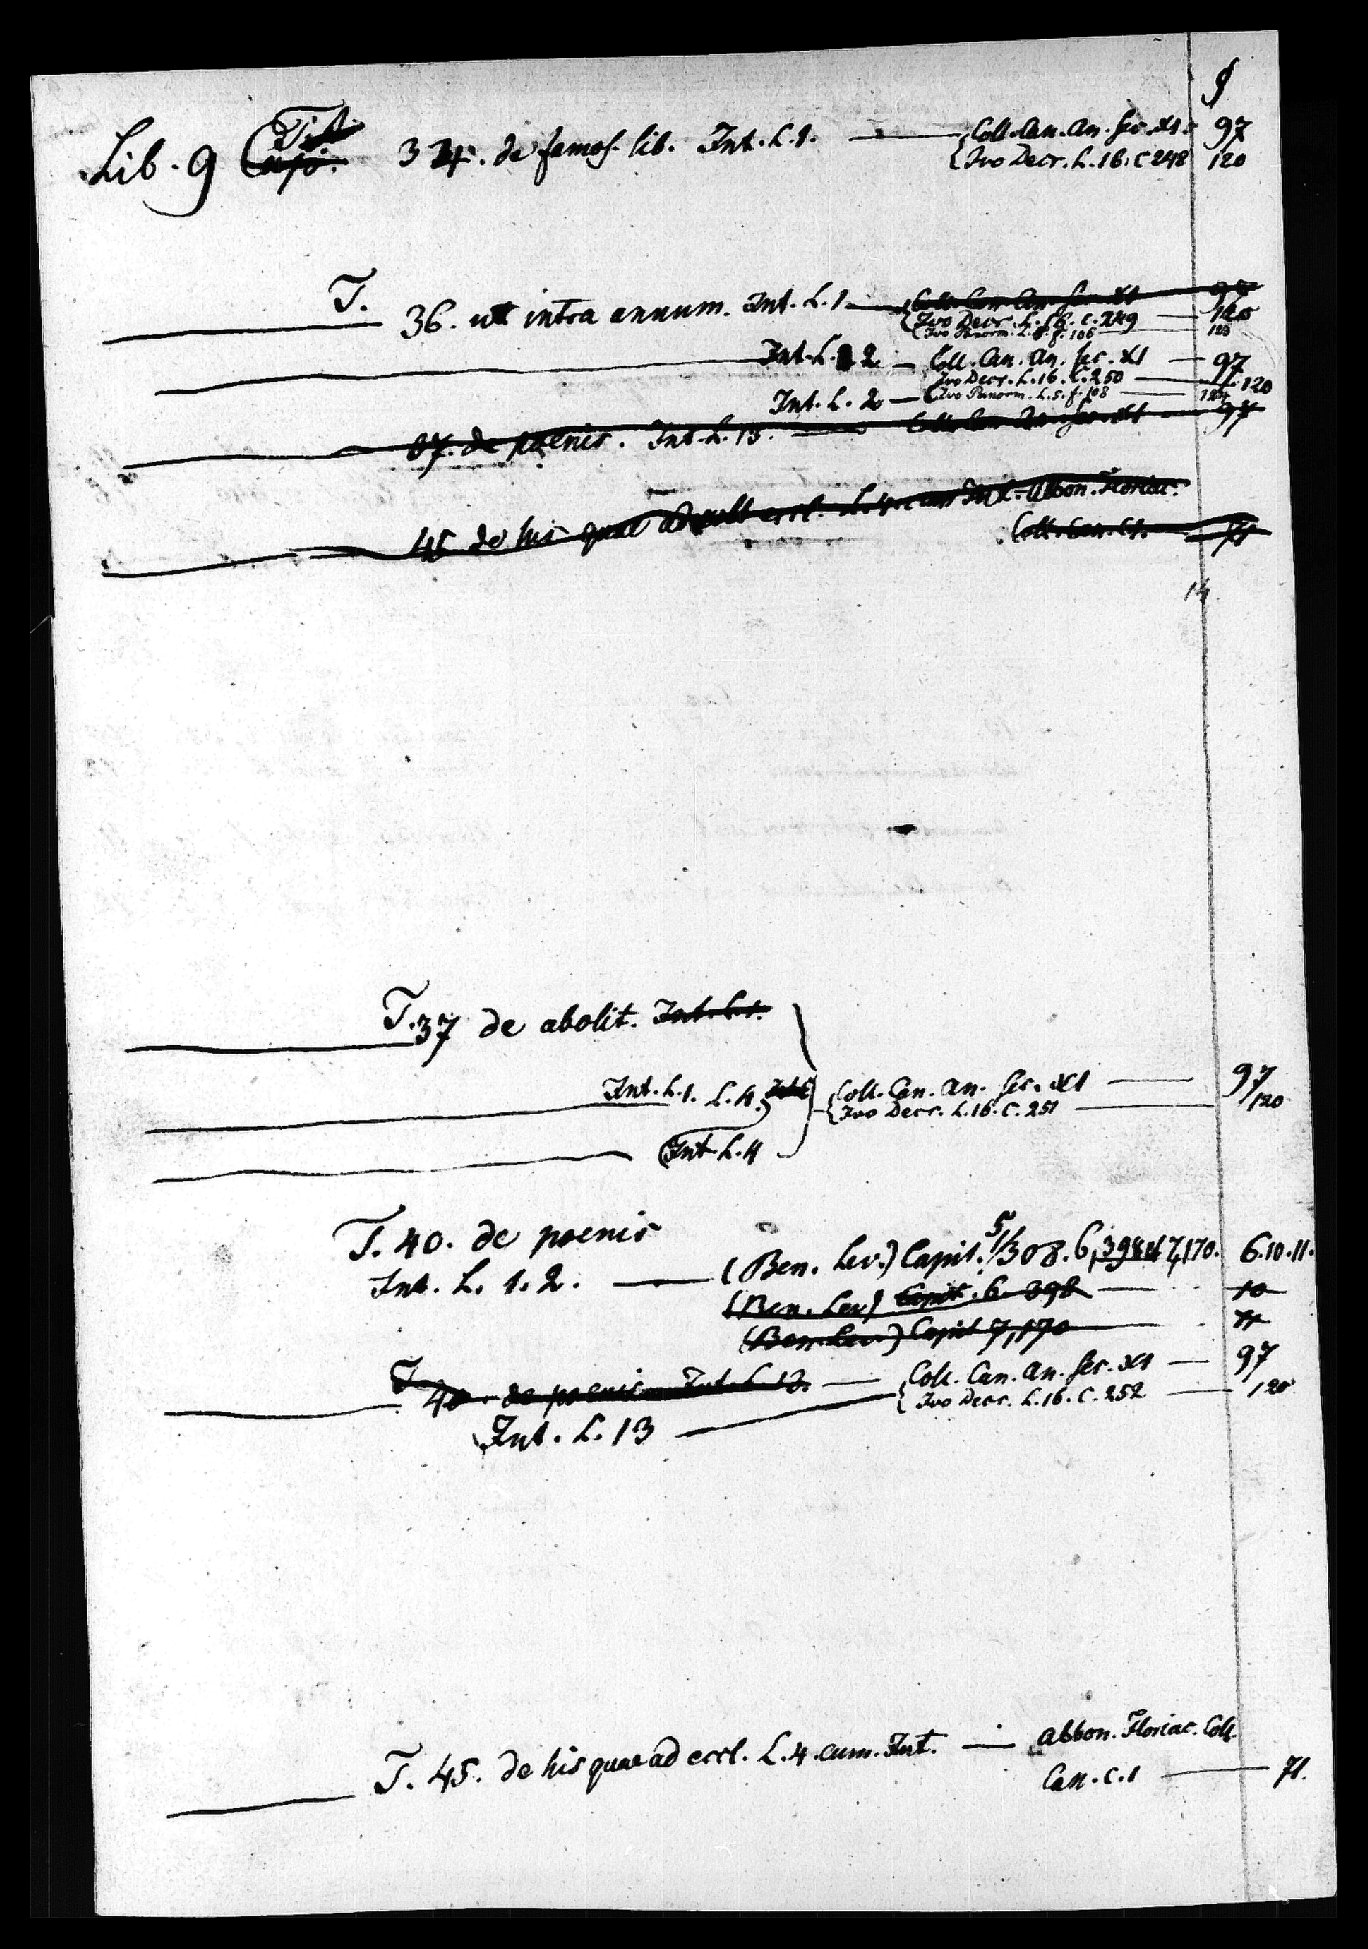 §
Lib. 9 Tit. 34. de famos. lib. Int. L. 1. — Coll. Can. An. Sec. XI. 97
Ivo Decr. L. 16. C 248 120
T. 36. ut intra annum. Int. L. 1 — Coll. Can. An. Sec. XI 97
Ivo Decr. L. 16. C. 249 — 120
Ivo Panorm. L. 5. f. 106 — 120
Int. L. 2 — Coll. Can. An. Sec. XI — 97
Ivo Decr. L. 16. C. 250 — 120
Int. L. 2 — Ivo Panorm. L. 5. f. 108
37. de poenis. Int. L. 13. — Coll. Can. An. Sec. XI — 97
45 de his quae ad eccl. L. 4. cum Int. Abbon. Floriac.
Coll. Can. C. 1. — 71
14.
T. 37 de abolit. Int. L. 1.
Int. L. 1. L. 4. Coll. Can. An. Sec. XI — 97
Ivo Decr. L. 16. C. 251 — 120
Int. L. 4
T. 40. de poenis
Int. L. 1. 2. — (Ben. Lev.) Capit. 5, 308. 6, 398 7, 170. 6. 10. 11.
(Ben. Lev) Capit. 6. 398 — 10
(Ben. Lev.) Capit 7, 170 — 11
T. 40. de poenis Int. L. 13. — Coll. Can. An. Sec. XI — 97
Ivo Decr. L. 16. C. 252 — 120
Int. L. 13
T. 45. de his quae ad eccl. L. 4. cum. Int. — Abbon. Floriac. Coll.
Can. C. 1 — 71.